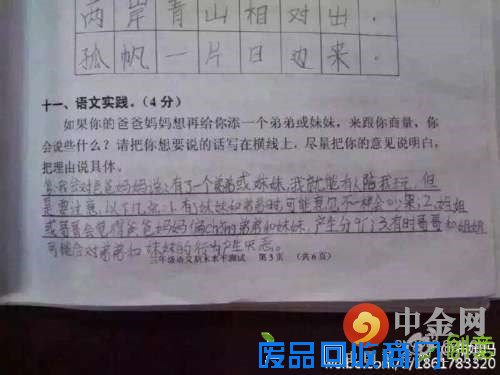 两岸青山相对出.
孤帆一片日边来.
十一、语文实践。(4分)
如果你的爸爸妈妈想再给你添一个弟弟或妹妹,来跟你商量,你
会说些什么?请把你想要说的话写在横线上,尽量把你的意见说明白,
把理由说具体。
我会对爸爸妈妈说:有了一个弟弟或妹妹,我就能有人陪我玩,但
是要注意,以下几点:1.有了妹妹和弟弟时可能
或哥哥会觉得爸爸妈妈偏心的弟弟和妹妹,产生分;3.有时哥哥和姐姐
可能会对弟弟和妹妹的行为产生
三年级语文期末水平测试 第3页 (共6页)
中金网
废品回收部门
weibo.com/1861783320